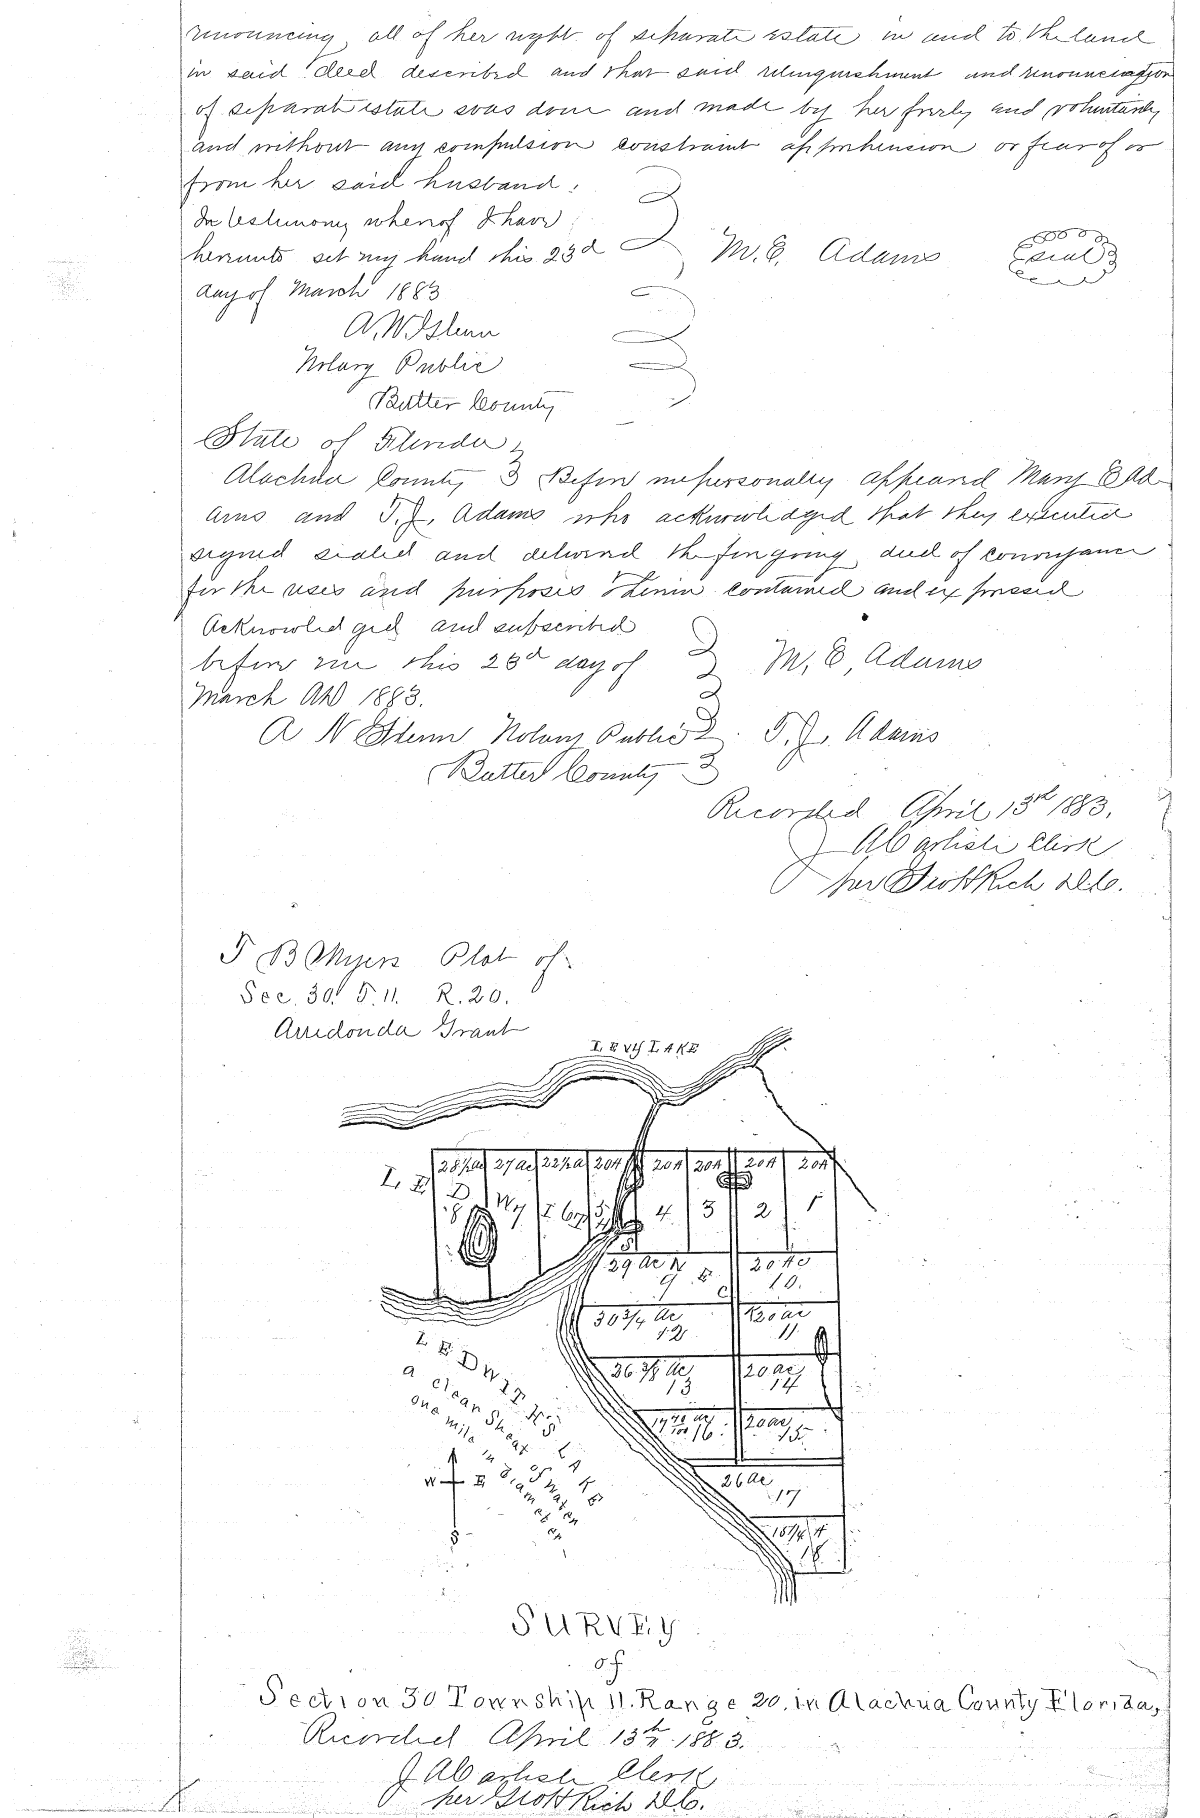 renouncing all of her right of separate estate in and to the land
in said deed described and that said relinquishment and renunciation
of separate estate was done and made by her freely and voluntarily
and without any compulsion constraint apprehension or fear of or
from her said husband.
In testimony whereof I have
hereunto set my hand this 23d
day of March 1883
M. E. Adams
Seal
A. W. Glenn
Notary Public
Butler County
State of Florida
Alachua County Before me personally appeared Mary E Ad-
ams and T. J. Adams who acknowledged that they executed
signed sealed and delivered the foregoing deed of conveyance
for the uses and purposes therein contained and expressed
Acknowledged and subscribed
before me this 23d day of
March AD 1883.
M. E. Adams
A N Glenn Notary Public T. J. Adams
Butler County
Recorded April 13th 1883.
J A Carlisle Clerk
per Scott Rich D.C.
T B Myers Plat of
Sec. 30. T. 11. R. 20.
Arredonda Grant
LEVY LAKE
28 1/2 ac 27 ac 22 1/2 a 20 A 20 A 20 A 20 A 20 A
LED W I
8 7 6 5 4 3 2 1
29 ac 9 20 Ac 10.
30 3/4 ac 12 20 ac 11
36 3/8 Ac 13 20 ac 14
16 20 ac 15
26 Ac 17
15 1/4 A 18
LEDWITH'S LAKE
a clear Sheat of Water
one mile in diameter
N
E
S
SURVEY
of
Section 30 Township 11. Range 20. in Alachua County Florida,
Recorded April 13th 1883.
J A Carlisle Clerk
per Scott Rich D.C.